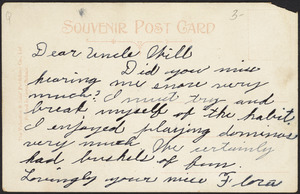 3-
SOUVENIR POST CARD
Dear Uncle Will
Did you miss
hearing me snore very
much? I must try and
break myself of the habit.
I enjoyed playing dominos
very much We certainly
had bushels of fun.
Lovingly your niece Flora